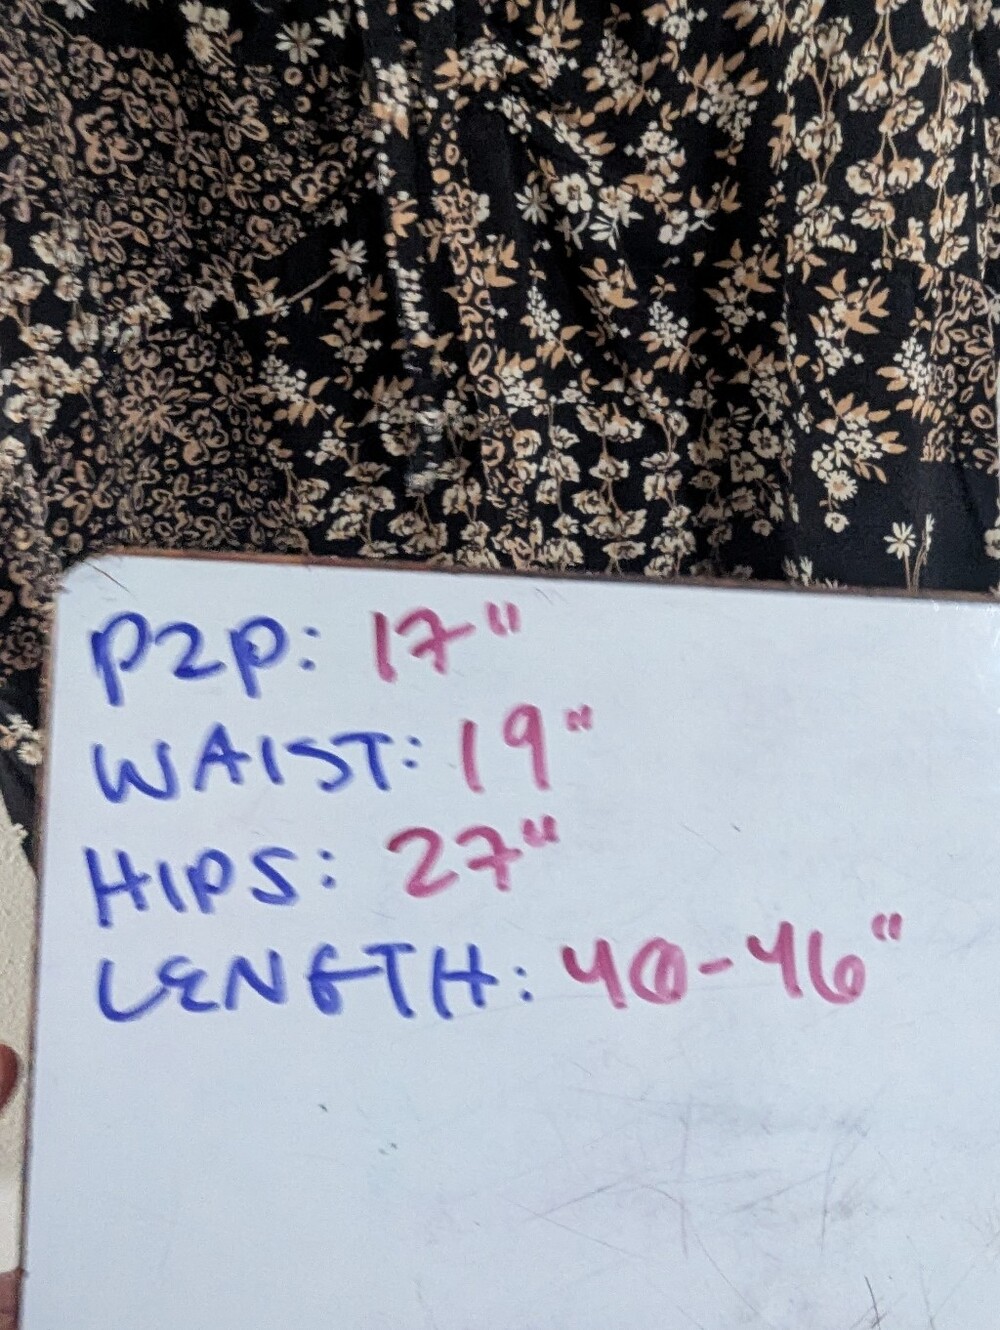 P2P: 17"
WAIST: 19"
HIPS: 27"
LENGTH: 40-46"